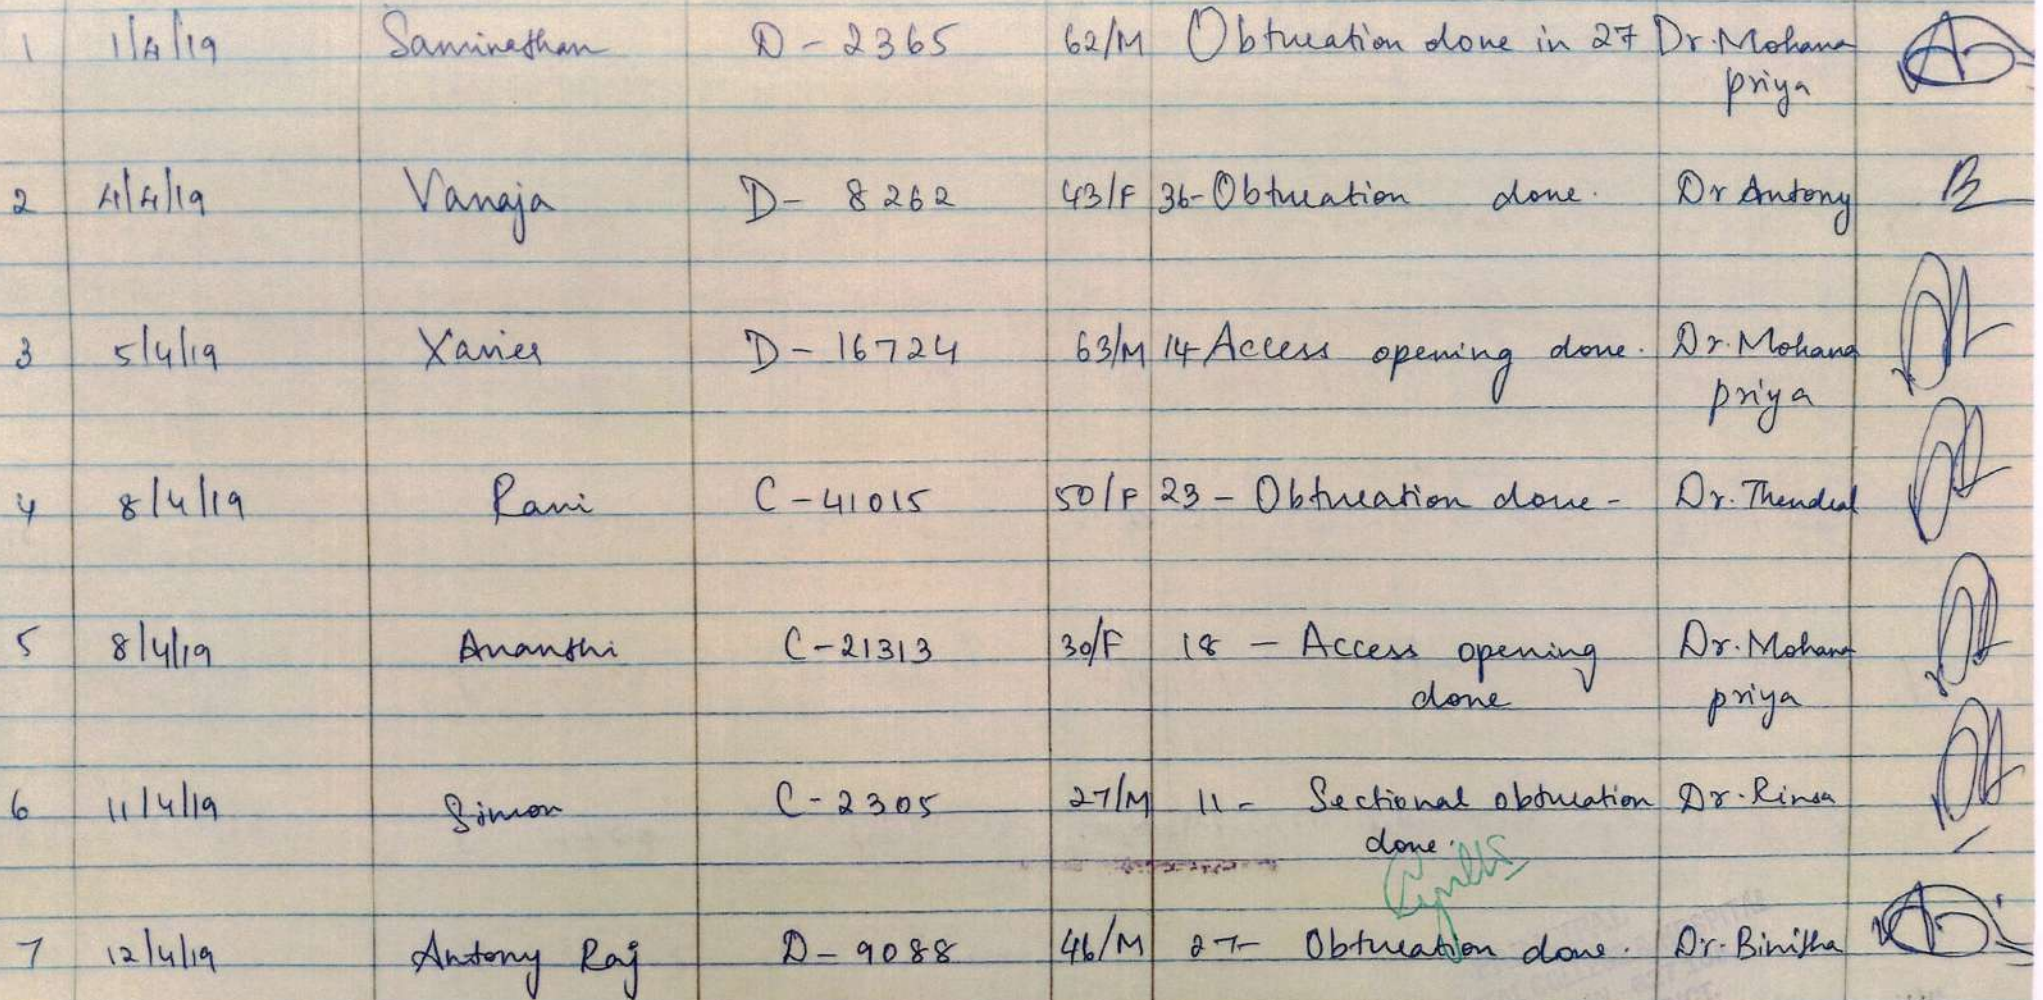 1 1/4/19 Saminathan D - 2365 62/M Obturation done in 27 Dr. Mohana
priya
2 4/4/19 Vanaja D- 8262 43/F 36- Obturation done. Dr Antony
3 5/4/19 Xavier D - 16724 63/M 14 Access opening done. Dr. Mohana
priya
4 8/4/19 Rani C - 41015 50/F 23 - Obturation done - Dr. Thendral
5 8/4/19 Ananthi C - 21313 30/F 18 - Access opening Dr. Mohana
done priya
6 11/4/19 Simon C - 2305 27/M 11 - Sectional obturation Dr. Rinsa
done.
7 12/4/19 Antony Raj D - 9088 46/M 27- Obturation done. Dr. Binisha